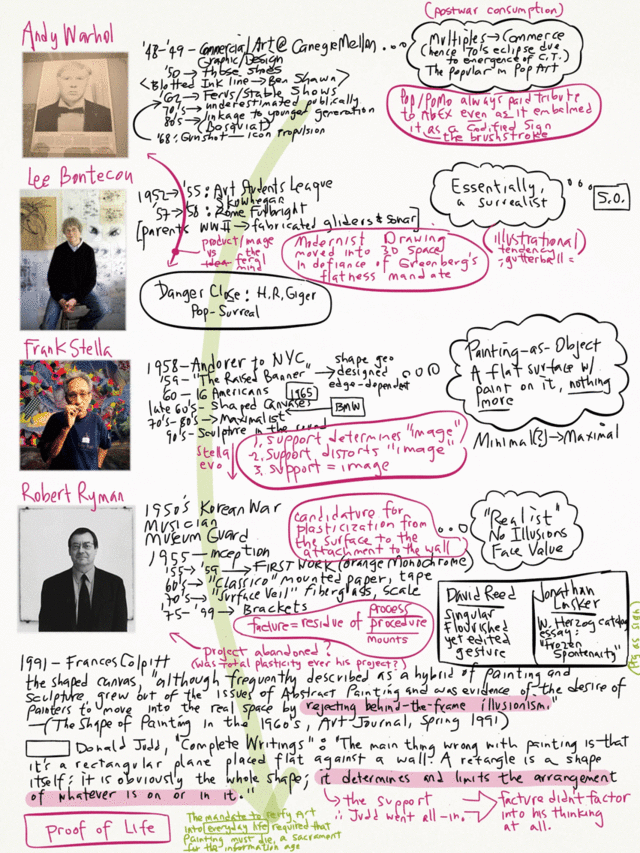 (postwar consumption)
Andy Warhol
'48-'49 - Commercial Art @ Carnegie Mellon
Graphic/Design
'50 → those shoes
<Blotted Ink line → Ben Shawn>
'62 → Ferus/Stable Shows
70's → underestimated publically
80's → linkage to younger generation
(Bosquiat)
'68: Gunshot — icon propulsion
Multiples → Commerce
(hence 70's eclipse due
to emergence of C.T.)
The popular in Pop Art
Pop/PoMo always paid tribute
to AbEx even as it embalmed
it as a codified sign
the brushstroke
Lee Bontecou
1952 → '55: Art Students League
Skowhegan
57 → '58: Rome Fulbright
[parents WWII → fabricated gliders & sonar]
product/image
vs the
idea feral
mind
Modernist Drawing
moved into 3D space
in defiance of Greenberg's
flatness mandate
Essentially,
a surrealist
S.O.
(illustrational)
tendency
; gutterball =
Danger Close: H.R. Giger
Pop-Surreal
Frank Stella
1958 - Andover to NYC,
'59 - "The Raised Banner"
60 - 16 Americans
1965
late 60's - Shaped Canvases
70's-80's → Maximalist
BMW
90's - Sculpture in the round
shape geo
designed
edge-dependent
Stella
evo
1. Support determines "image"
2. Support distorts "image"
3. Support = image
Painting-as-Object
A flat surface w/
paint on it, nothing
more
Minimal(?) → Maximal
Robert Ryman
1950's Korean War
Musician
Museum Guard
1955 — inception
'55 → '59 → FIRST WORK (orange Monochrome)
60's → "Classico" mounted paper, tape
70's → "Surface Veil" fiberglass, scale
'75-'99 → Brackets
candidature for
plasticization from
the surface to the
attachment to the wall
"Realist"
No Illusions
Face Value
facture = residue of process
procedure
mounts
David Reed
singular
flourished
yet edited
gesture
Jonathan
Lasker
W. Herzog catalog
essay:
"frozen
spontenuity"
Project abandoned?
(was total plasticity ever his project?)
1991 - Frances Colpitt
the shaped canvas, "although frequently described as a hybrid of painting and
sculpture, grew out of the issues of Abstract Painting and was evidence of the desire of
painters to move into the real space by rejecting behind-the-frame illusionism."
—(The Shape of Painting in the 1960's, Art Journal, Spring 1991)
Donald Judd, "Complete Writings": "The main thing wrong with painting is that
it's a rectangular plane placed flat against a wall. A retangle is a shape
itself; it is obviously the whole shape; it determines and limits the arrangement
of whatever is on or in it."
the support
∴ Judd went all-in.
facture didn't factor
into his thinking
at all.
Proof of Life
The mandate to reify Art
into everyday life required that
Painting must die, a sacrament
for the information age